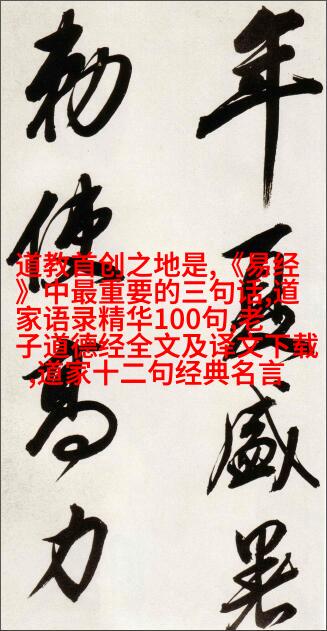 年夏盛暑
勅使高力
道教首创之地是,《易经
》中最重要的三句话,道
家语录精华100句,老
子道德经全文及译文下载
,道家十二句经典名言